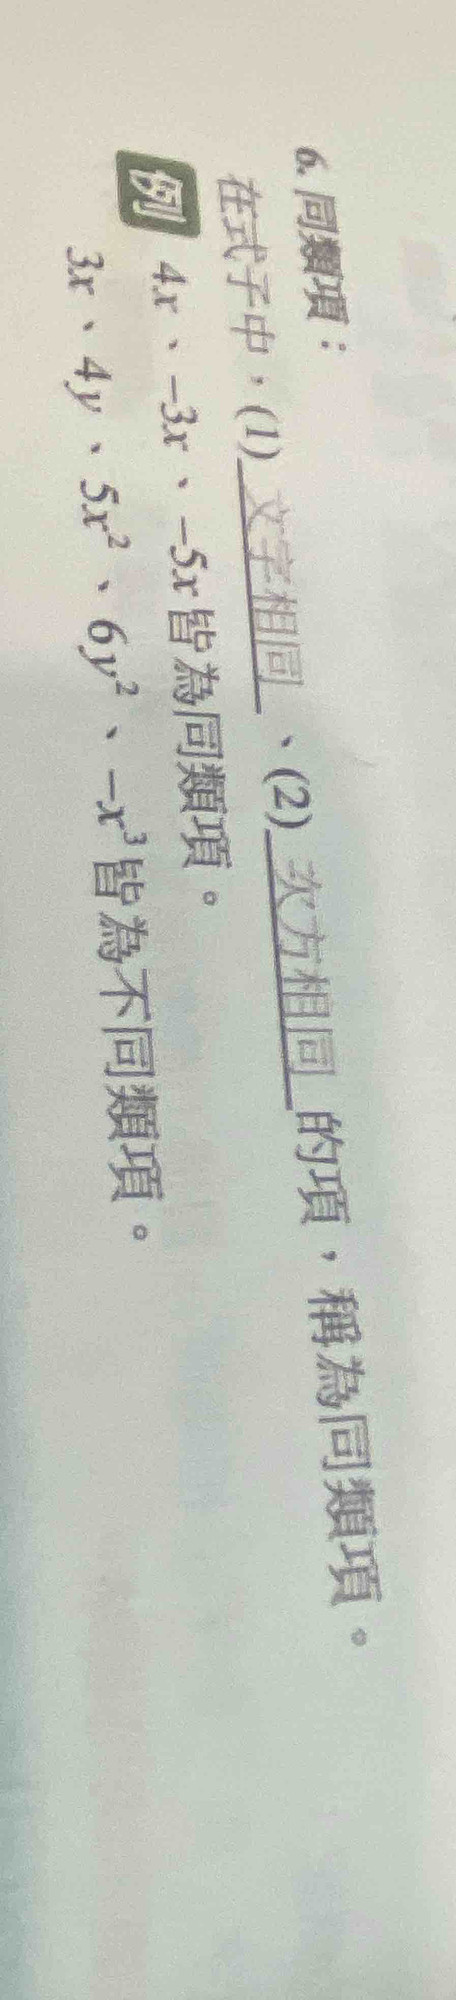 6. 同類項：
在式子中，(1) 文字相同 、(2) 次方相同 的項，稱為同類項。
例 4x、-3x、-5x皆為同類項。
3x、4y、5x²、6y²、-x³皆為不同類項。